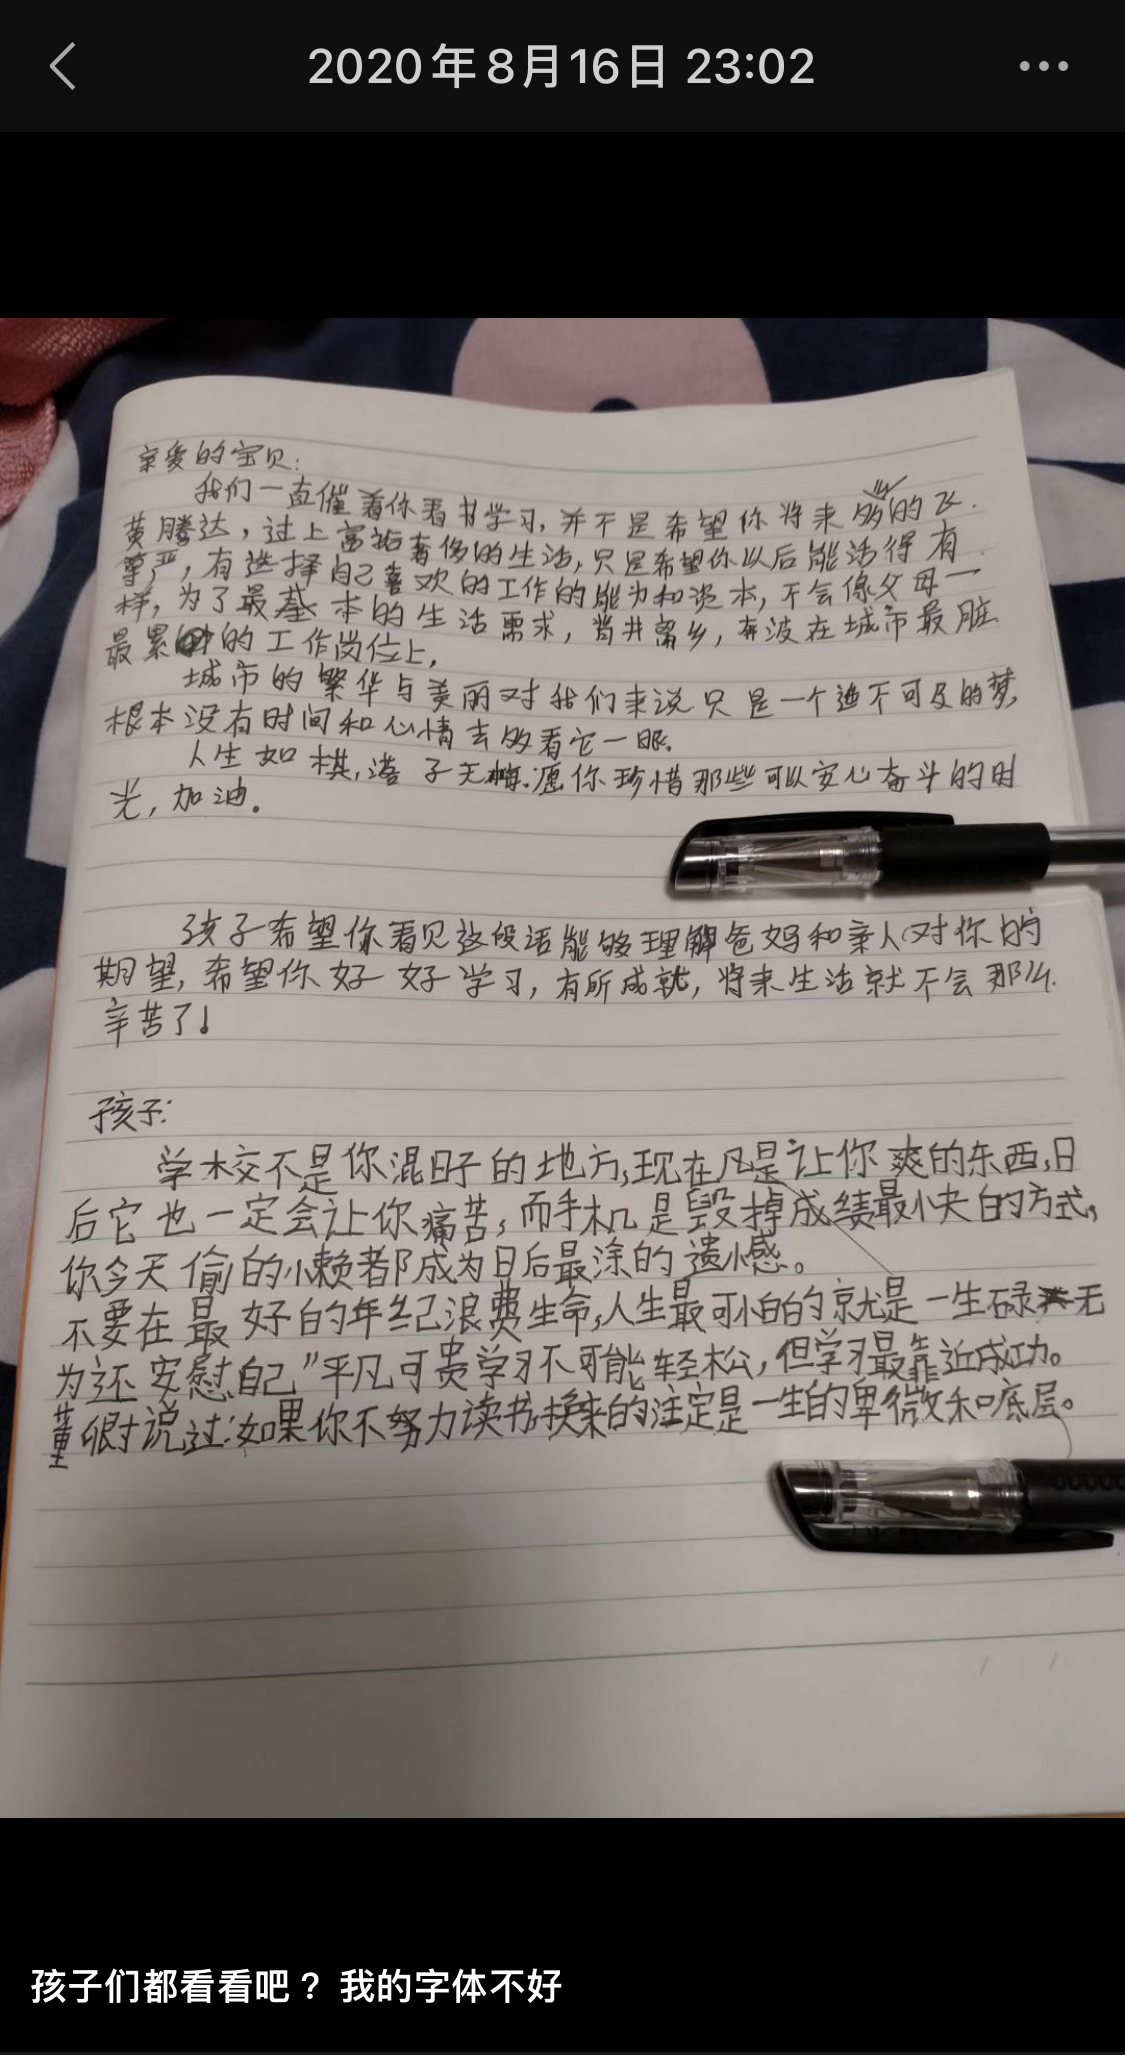 2020年8月16日 23:02
亲爱的宝贝:
我们一直催着你看书学习,并不是希望你将来够的飞.
黄腾达,过上富裕奢侈的生活,只是希望你以后能活得有
尊严,有选择自己喜欢的工作的能力和资本,不会像父母一
样,为了最基本的生活需求,背井离乡,奔波在城市最脏
最累的工作岗位上,
城市的繁华与美丽对我们来说只是一个遥不可及的梦,
根本没有时间和心情去够看它一眼.
人生如棋,落子无悔.愿你珍惜那些可以安心奋斗的时
光,加油。
孩子希望你看见这段话能够理解爸妈和亲人对你的
期望,希望你好好学习,有所成就,将来生活就不会那么
辛苦了!
孩子:
学校不是你混日子的地方,现在凡是让你爽的东西,日
后它也一定会让你痛苦,而手机是毁掉成绩最快的方式,
你今天偷的懒都成为日后最深的遗憾。
不要在最好的年纪浪费生命,人生最可怕的就是一生碌无
为还安慰自己"平凡可贵学习不可能轻松,但学习最靠近成功。
说过:如果你不努力读书,换来的注定是一生的卑微和底层。
孩子们都看看吧? 我的字体不好